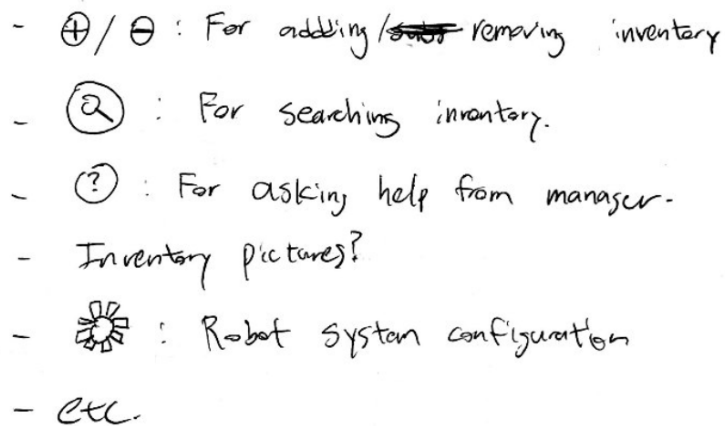 - ⊕/⊖ : For addding/ removing inventory
- : For searching inventory.
- ? : For asking help from manager.
- Inventory pictures?
- : Robot system configuration
- etc.